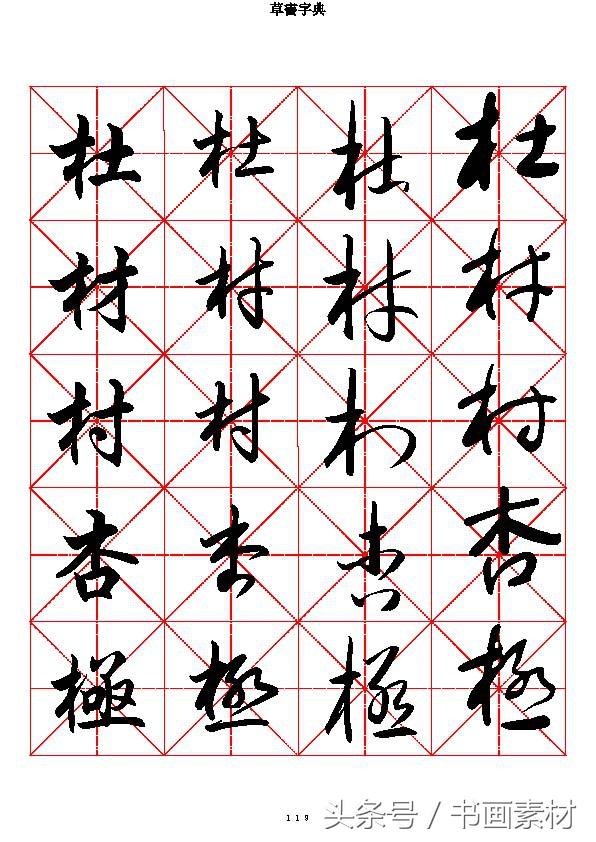 草書字典
杜 杜 杜 杜
材 材 材 材
村 村 村 村
杏 杏 杏 杏
極 極 極 極
119
头条号 / 书画素材